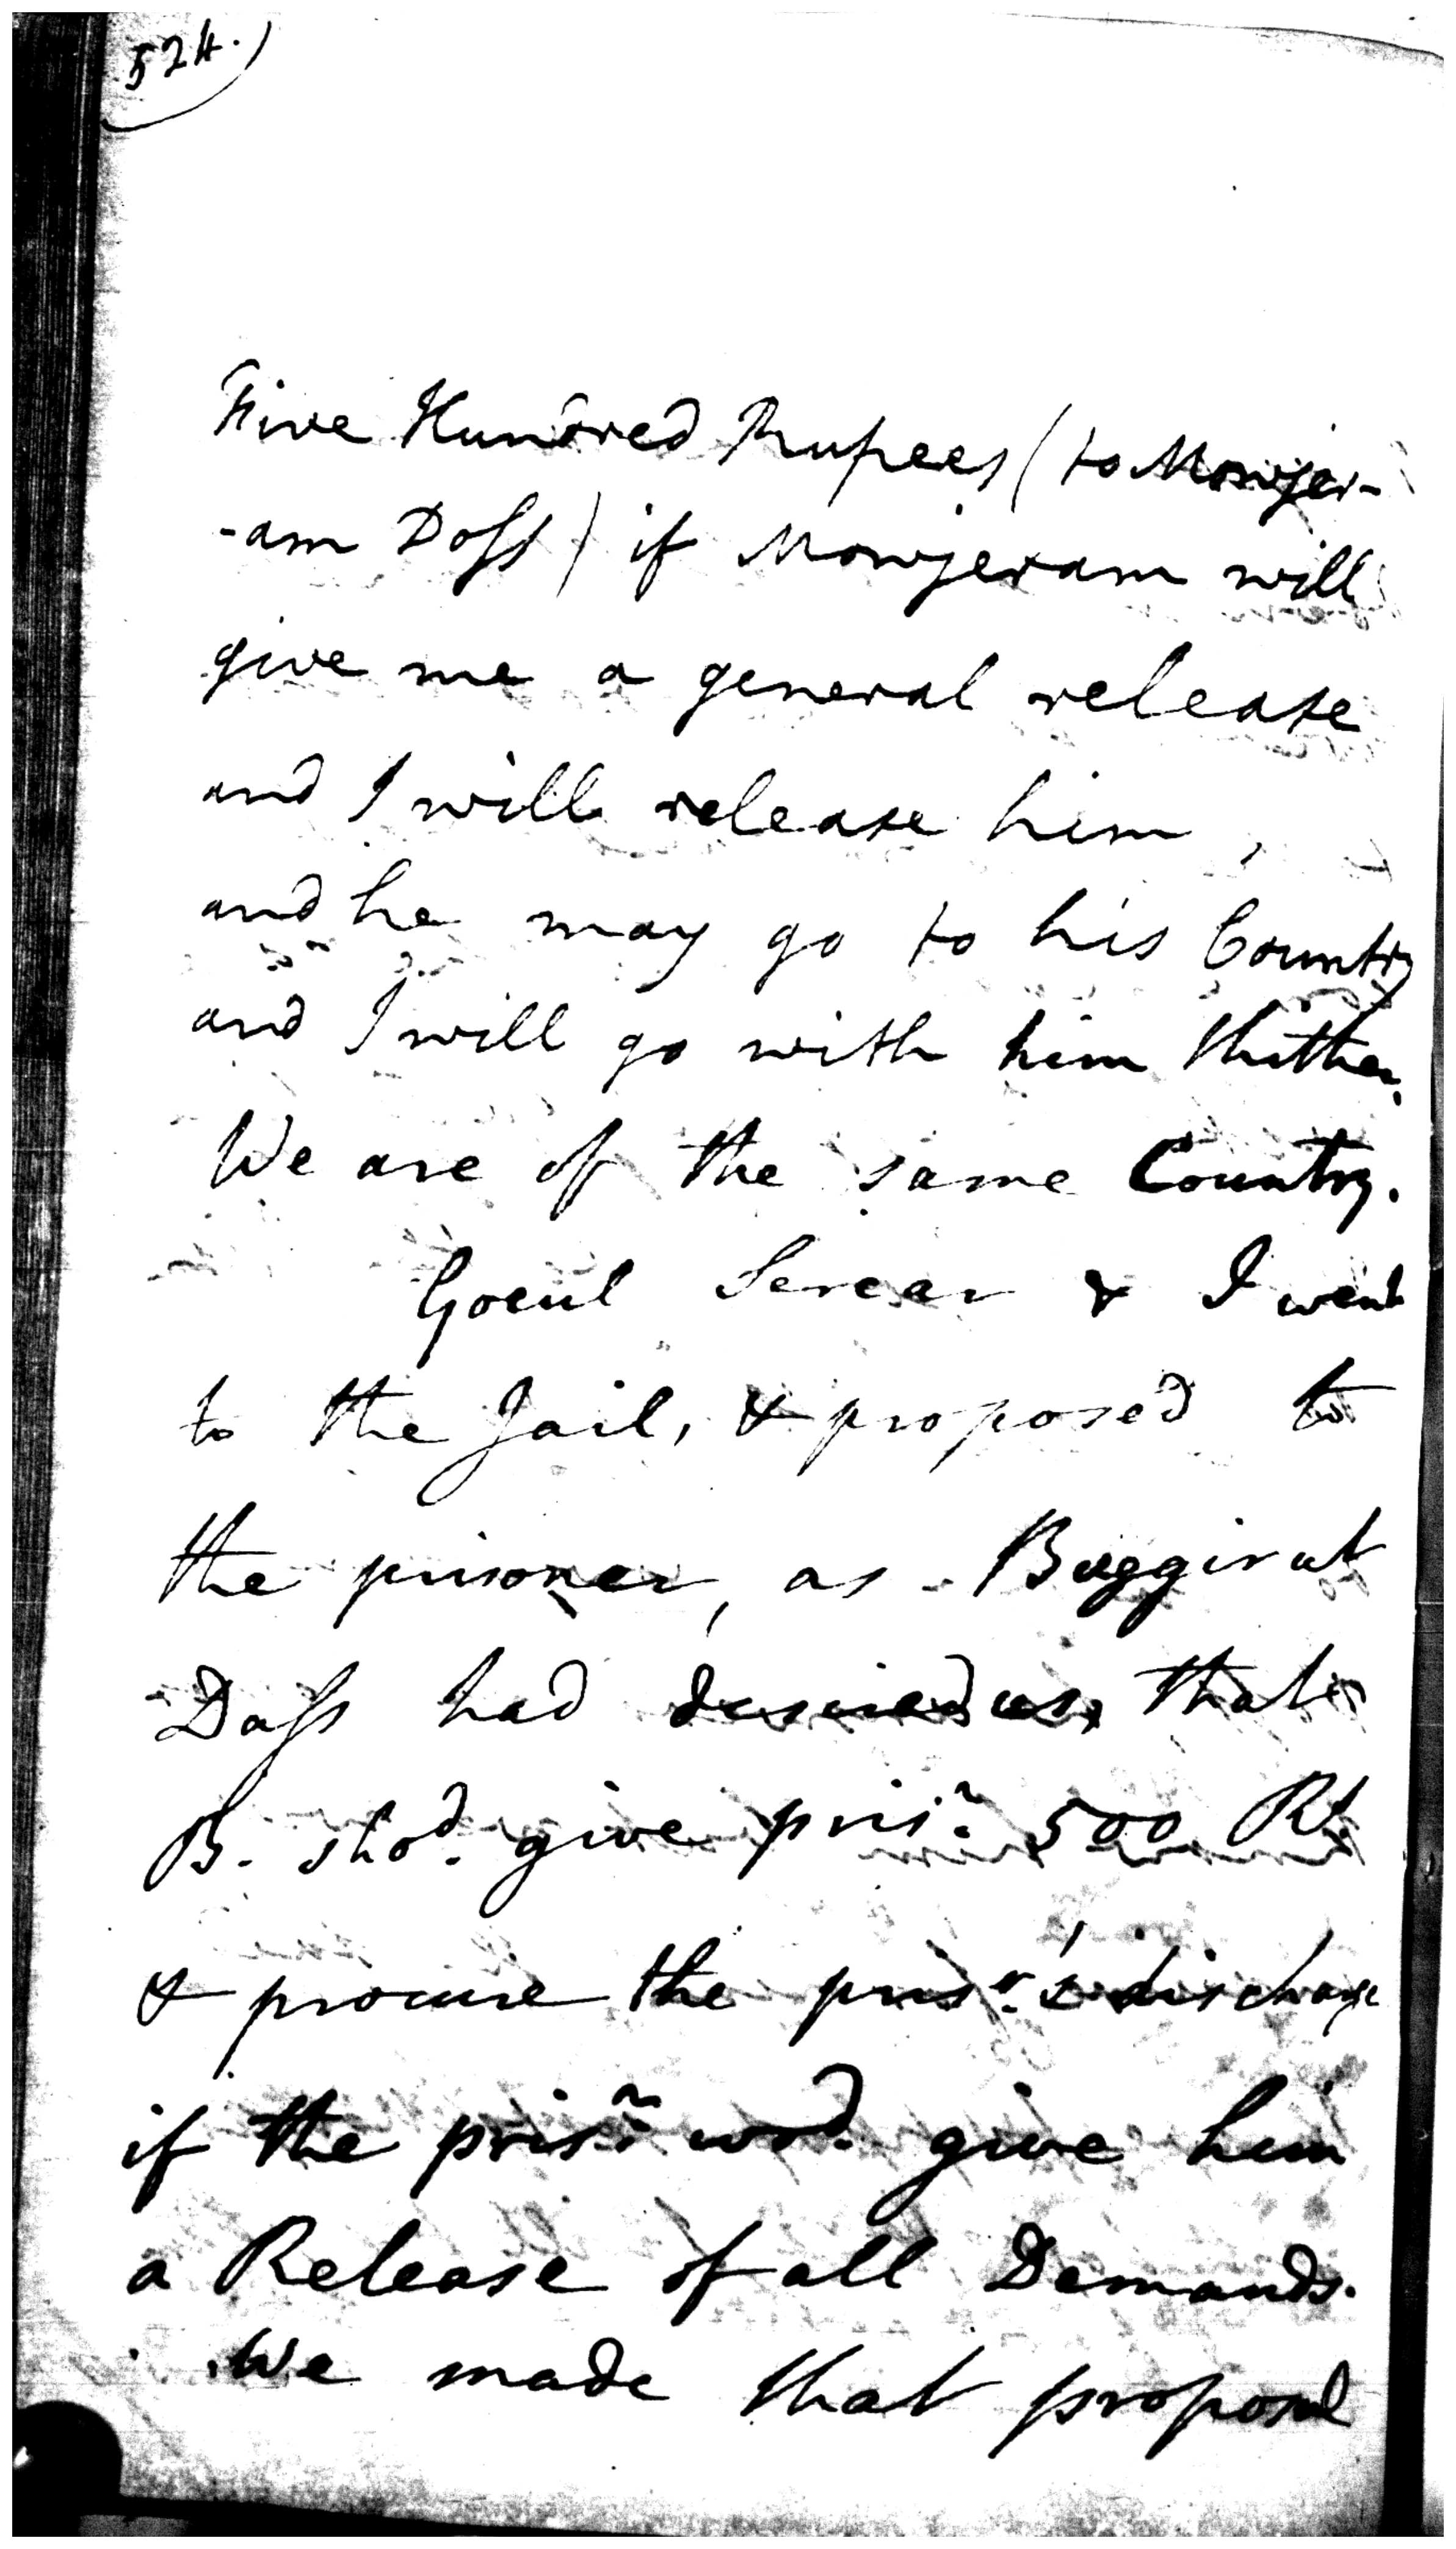 524.
Five Hundred Rupees (to Mowjer-
-am Doss) if Mowjeram will
give me a general release
and I will release him,
and he may go to his Country
and I will go with him thither.
We are of the same Country.
Gocul Sercar & I went
to the Jail, & proposed to
the prisoner, as Buggirut
Dass had desired us, that
B. shod. give prisr. 500 Rs
& procure the prisr.'s discharge
if the prisr. wod. give him
a Release of all Demands.
We made that proposal